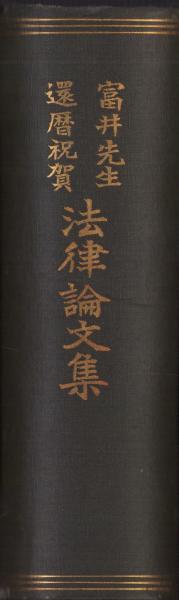 富井先生
還暦祝賀
法律論文集